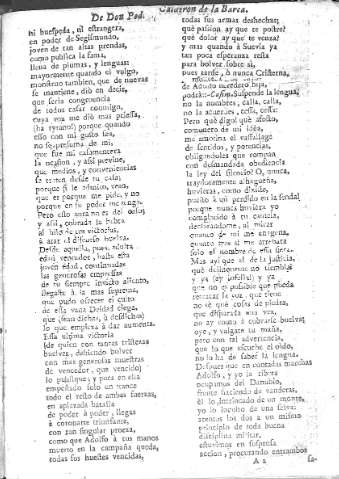 De Don Ped. Calderon de la Barca.
ni huespeda, ni estrangera,
en poder de Segismundo,
joven de tan altas prendas,
como publica la fama,
llena de plumas, y lenguas:
mayormente quando el vulgo,
monstruo tambien, que de nuevas
se mantiene, diò en decir,
que seria congruencia
de todos casar conmigo,
cuya voz me diò mas priessa,
(ha tyrano!) porque quando
esso con mi gusto sea,
no se presuma de mi,
que fue mi
la ocasion, y assi previne,
que medios, y conveniencias
se traten desde tu casa;
porque si le admito, vean,
que es porque me pide, y no
porque en su poder me tenga.
Pero esto aora no es del caso;
y assi, cobrada la hebra
al hilo de tus victorias,
à atar el discurso buelva.
Desde aquella, pues, adulta
edad vencedor, hasta esta
joven edad, continuadas
las generosas empressas
de tu siempre invicto aliento,
llegaste à la mas suprema,
que pudo ofrecer el culto
de essa vana Deidad ciega,
que (sean dichas, ò desdichas)
lo que empieza à dar aumenta.
Esta ultima victoria
(de quien con tantas tristezas
buelves, debiendo bolver
con mas generosas muestras
de vencedor, que vencido)
lo publique; y pues en ella
empeñado solo un trance
todo el resto de ambas fuerzas,
en aplazada batalla
de poder à poder, llegas
à coronarte triunfante,
con tan singular proeza,
como que Adolfo à tus manos
muerto en la campaña queda,
todas sus huestes vencidas,
todas sus armas deshechas;
què passion ay que te postre?
què dolor ay que te venza?
y mas quando à Suevia ya
tan poca esperanza resta
para bolver sobre si,
pues tarde, ò nunca Cristerna,
de Adolfo heredera hija,
podrà:- Casim. Suspende la lengua,
no la nombres, calla, calla,
no la acuerdes, cessa, cessa:
Pero què digo? què afecto,
comunero de mi idea,
me amotina el vassallage
de sentidos, y potencias,
obligandoles que rompan
con desmandada obediencia
la ley del silencio? O, nunca,
traydoramente alhagueña,
huvieras, como dixiste,
puesto à mi perdido en la senda!
porque nunca huviera yo
complacido à tu cautela,
declarandome, al mirar
quanto de mi me enagena,
quanto tras si me arrebata
solo el nombre de essa fiera.
Mas ay! que al de la Justicia,
què delinquente no tiembla?
y ya (ay infeliz!) y ya
que no es possible que pueda
retratar la voz, que tiene
no sè què cosas de piedra,
que disparada una vez,
no ay como à cobrarse buelva;
oye, y valgate tu maña,
pero con tal advertencia,
que lo que escuche el oìdo,
no lo ha de saber la lengua.
Despues que en contadas marchas
Adolfo, y yo la ribera
ocupamos del Danubio,
frente haciendo de vanderas,
èl lo intrincado de un monte,
yo lo inculto de una selva:
atentos los dos à un mismo
principio de toda buena
disciplina militar,
estuvimos en suspensa
accion, procurando entrambos
A 2 sa-